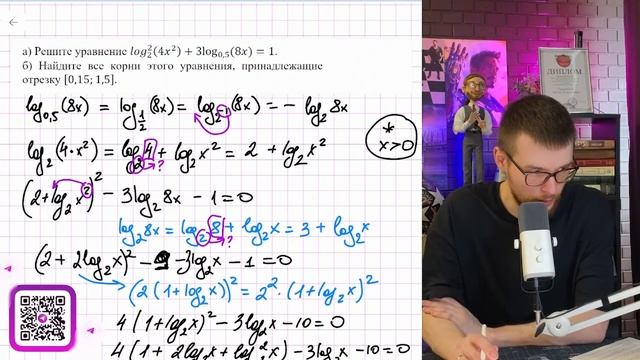 а) Решите уравнение log₂²(4x²) + 3log₀,₅(8x) = 1.
б) Найдите все корни этого уравнения, принадлежащие
отрезку [0,15; 1,5].
log₀,₅(8x) = log_{1/2}(8x) = log_{2⁻¹}(8x) = − log₂8x
log₂(4·x²) = log₂4 + log₂x² = 2 + log₂x²
2 → ?
* x>0
(2+log₂x²)² − 3log₂8x − 1=0
log₂8x = log₂8 + log₂x = 3 + log₂x
2 → ?
(2 + 2log₂x)² − 9 − 3log₂x − 1=0
(2(1+log₂x))² = 2²·(1+log₂x)²
4(1+log₂x)² − 3log₂x − 10=0
4(1 + 2log₂x + log₂²x) − 3log₂x − 10=0
ДИПЛОМ